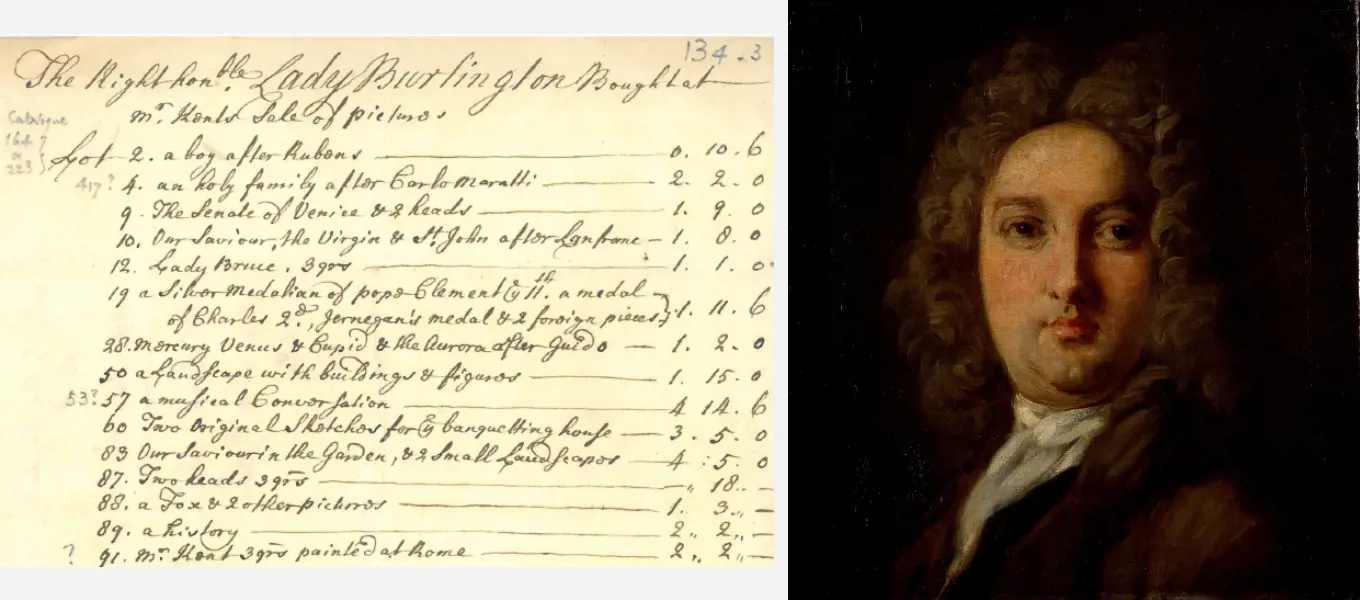 134-3
The Right hon.ble Lady Burlington Bought at
mr. Kents Sale of pictures
Catalogue
164?
or
223}
Lot 2. a boy after Rubens 0. 10. 6
417? 4. an holy family after Carlo Maratti 2. 2. 0
9. The Senate of Venice & 2 heads 1. 9. 0
10. Our Saviour, the Virgin & St. John after Lanfranc 1. 8. 0
12. Lady Bruce. 3qrs 1. 1. 0
19 a Silver Medalian of pope Clement ye 11th. a medal
of Charles 2d., Jernegan's medal & 2 foreign pieces} 1. 11. 6
28. Mercury Venus & Cupid & the Aurora after Guido 1. 2. 0
50 a Landscape with buildings & figures 1. 15. 0
53? 57 a musical Conversation 4 14. 6
60 Two Original Sketches for ye banquetting house 3. 5. 0
83 Our Saviour in the Garden, & 2 Small Landscapes 4 : 5. 0
87. Two heads 3qrs " 18.. -
88. a Fox & 2 other pictures 1. 3.. -
89. a history 2.. 2.. -
? 91. Mr. Kent 3qrs painted at Rome 2.. 2.. -